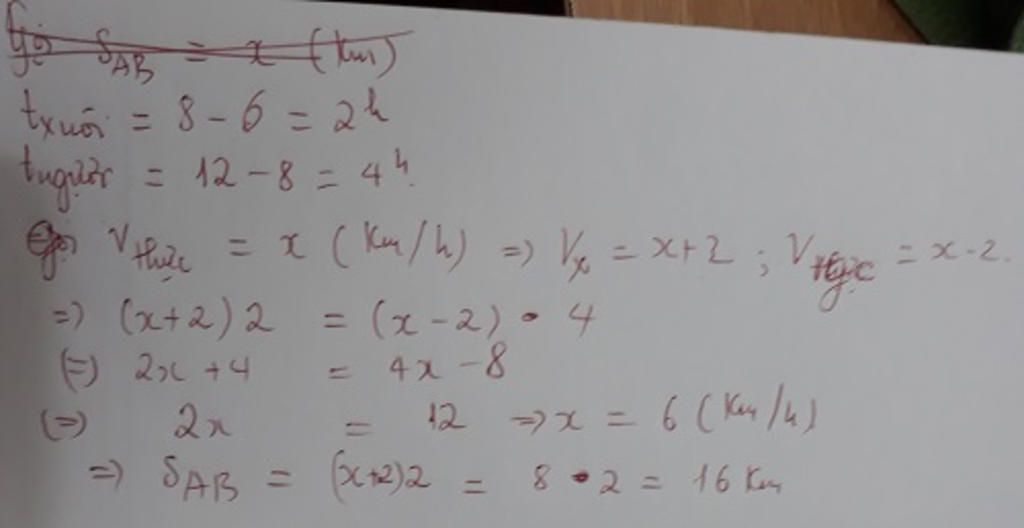 Gọi SAB = x (km)
txuôi = 8 - 6 = 2h
tngược = 12 - 8 = 4h.
Gọi Vthực = x (km/h) => Vx = x+2 ; Vngược = x-2.
=> (x+2)2 = (x-2) • 4
(=) 2x +4 = 4x -8
(=) 2x = 12 => x = 6 (km/h)
=> SAB = (x+2)2 = 8 • 2 = 16 km